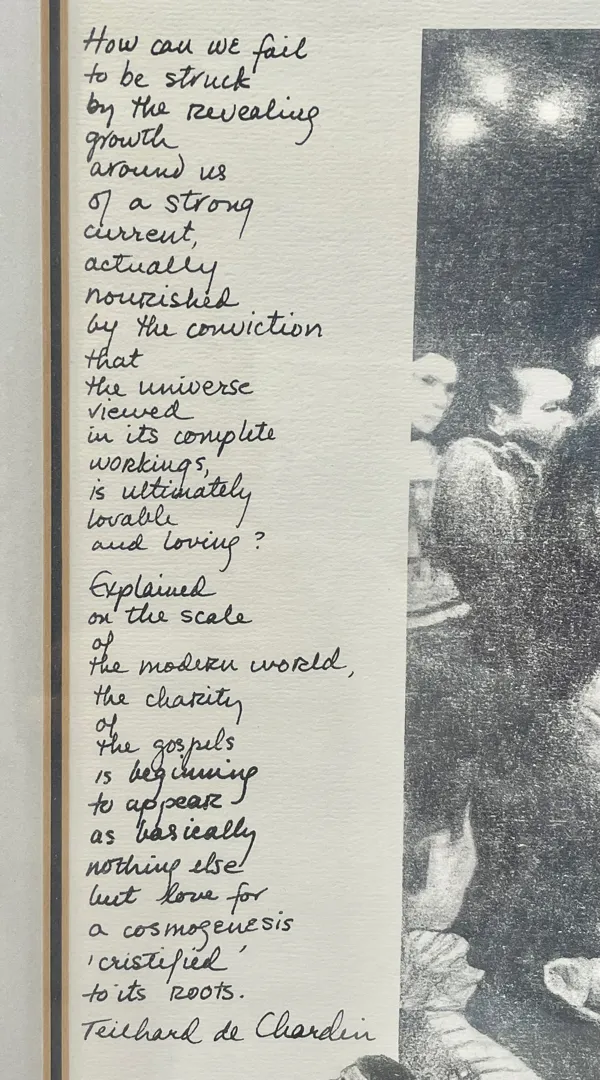 How can we fail
to be struck
by the revealing
growth
around us
of a strong
current,
actually
nourished
by the conviction
that
the universe
viewed
in its complete
workings,
is ultimately
lovable
and loving?
Explained
on the scale
of
the modern world,
the charity
of
the gospels
is beginning
to appear
as basically
nothing else
but love for
a cosmogenesis
'cristified'
to its roots.
Teilhard de Chardin